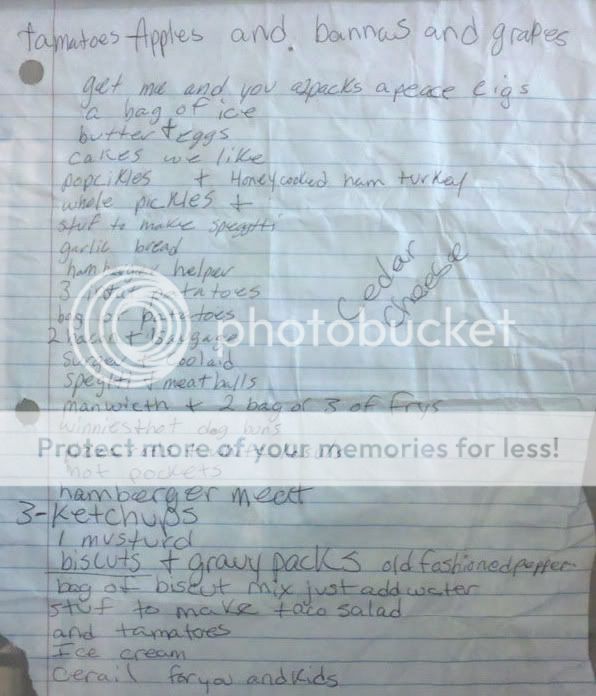 tamatoes Apples and. bannas and grapes
get me and you a2packs apeace cigs
a bag of ice
butter + eggs
cakes we like
popcikles + Honeycooked ham turkey
whole pickles +
stuf to make spegitti
garlic bread
hamburger helper
Cedar
cheese
3 potatoes
bag of potatoes
2 bacon + Sausage
photobucket
koolaid
spegitti + meatballs
manwicth + 2 bag or 3 of frys
winnies hot dog buns
Protect more of your memories for less!
hot pockets
hamberger meat
3-Ketchups
1 musturd
biscuts + gravy packs old fashioned pepper
bag of biscut mix just add water
stuf to make taco salad
and tamatoes
Ice cream
cerail for you and kids